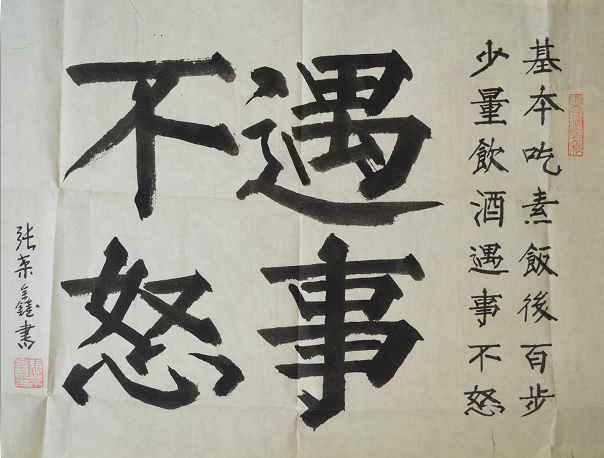 基本吃素飯後百步
少量飲酒遇事不怒
遇事
不怒
张荣鑫書